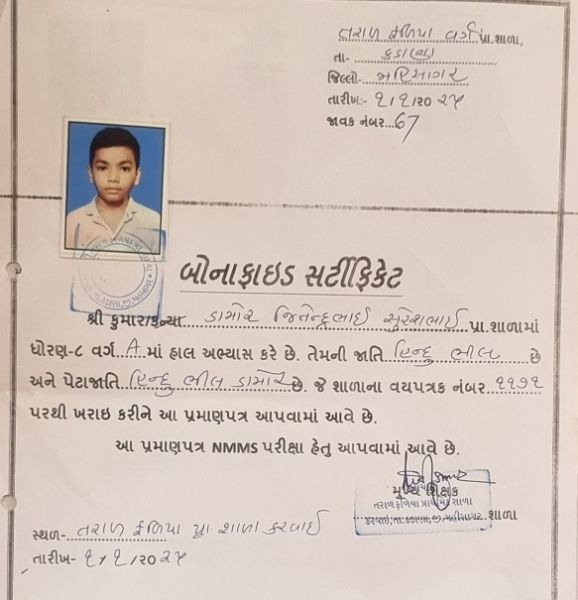 તરાળ ફળિયા વર્ગ પ્રા.શાળા,
તા- કડાણા
જિલ્લો- મહિસાગર
તારીખ:- ૧/૧/૨૦૨૫
જાવક નંબર...67
બોનાફાઇડ સર્ટીફિકેટ
શ્રી કુમાર/કન્યા ડામોર જિતેન્દ્રભાઈ સુરેશભાઈ પ્રા.શાળામાં
ધોરણ-૮ વર્ગ A માં હાલ અભ્યાસ કરે છે. તેમની જાતિ હિન્દુ ભીલ છે
અને પેટાજાતિ હિન્દુ ભીલ ડામોર છે. જે શાળાના વયપત્રક નંબર ૧૧૭૧
પરથી ખરાઇ કરીને આ પ્રમાણપત્ર આપવામાં આવે છે.
આ પ્રમાણપત્ર NMMS પરીક્ષા હેતુ આપવામાં આવે છે.
મુખ્ય શિક્ષક
તરાળ ફળિયા પ્રાથમિક શાળા
કરવાઈ,તા.કડાણા,જી.મહીસાગર. શાળા
સ્થળ- તરાળ ફળિયા પ્રા શાળા કરવાઈ
તારીખ- ૧/૧/૨૦૨૫